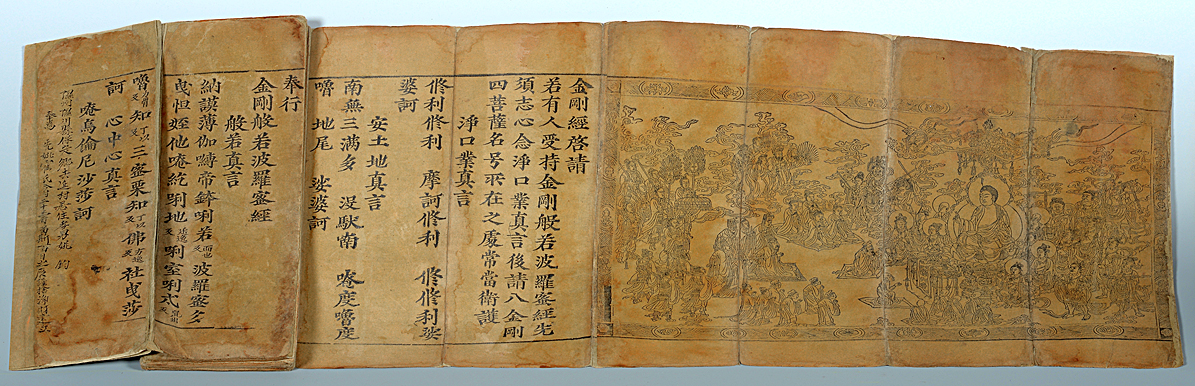 金剛經啓請
若有人受持金剛般若波羅蜜經先
須志心念淨口業真言後請八金剛
四菩薩名号所在之處常當衛護
淨口業真言
修利修利 摩訶修利 修修利娑
婆訶
安土地真言
南無三滿多 沒馱喃 唵度嚕度
嚕 地尾 娑婆訶
奉行
金剛般若波羅蜜經
般若真言
納謨薄伽嚩帝鉢唎若 波羅蜜多
曳怛姪他唵紇唎地 唎室唎式
嚕 知丁以反 三蜜栗知丁以反 佛 社曳莎
訶 心中心真言
唵烏倫尼沙莎訶